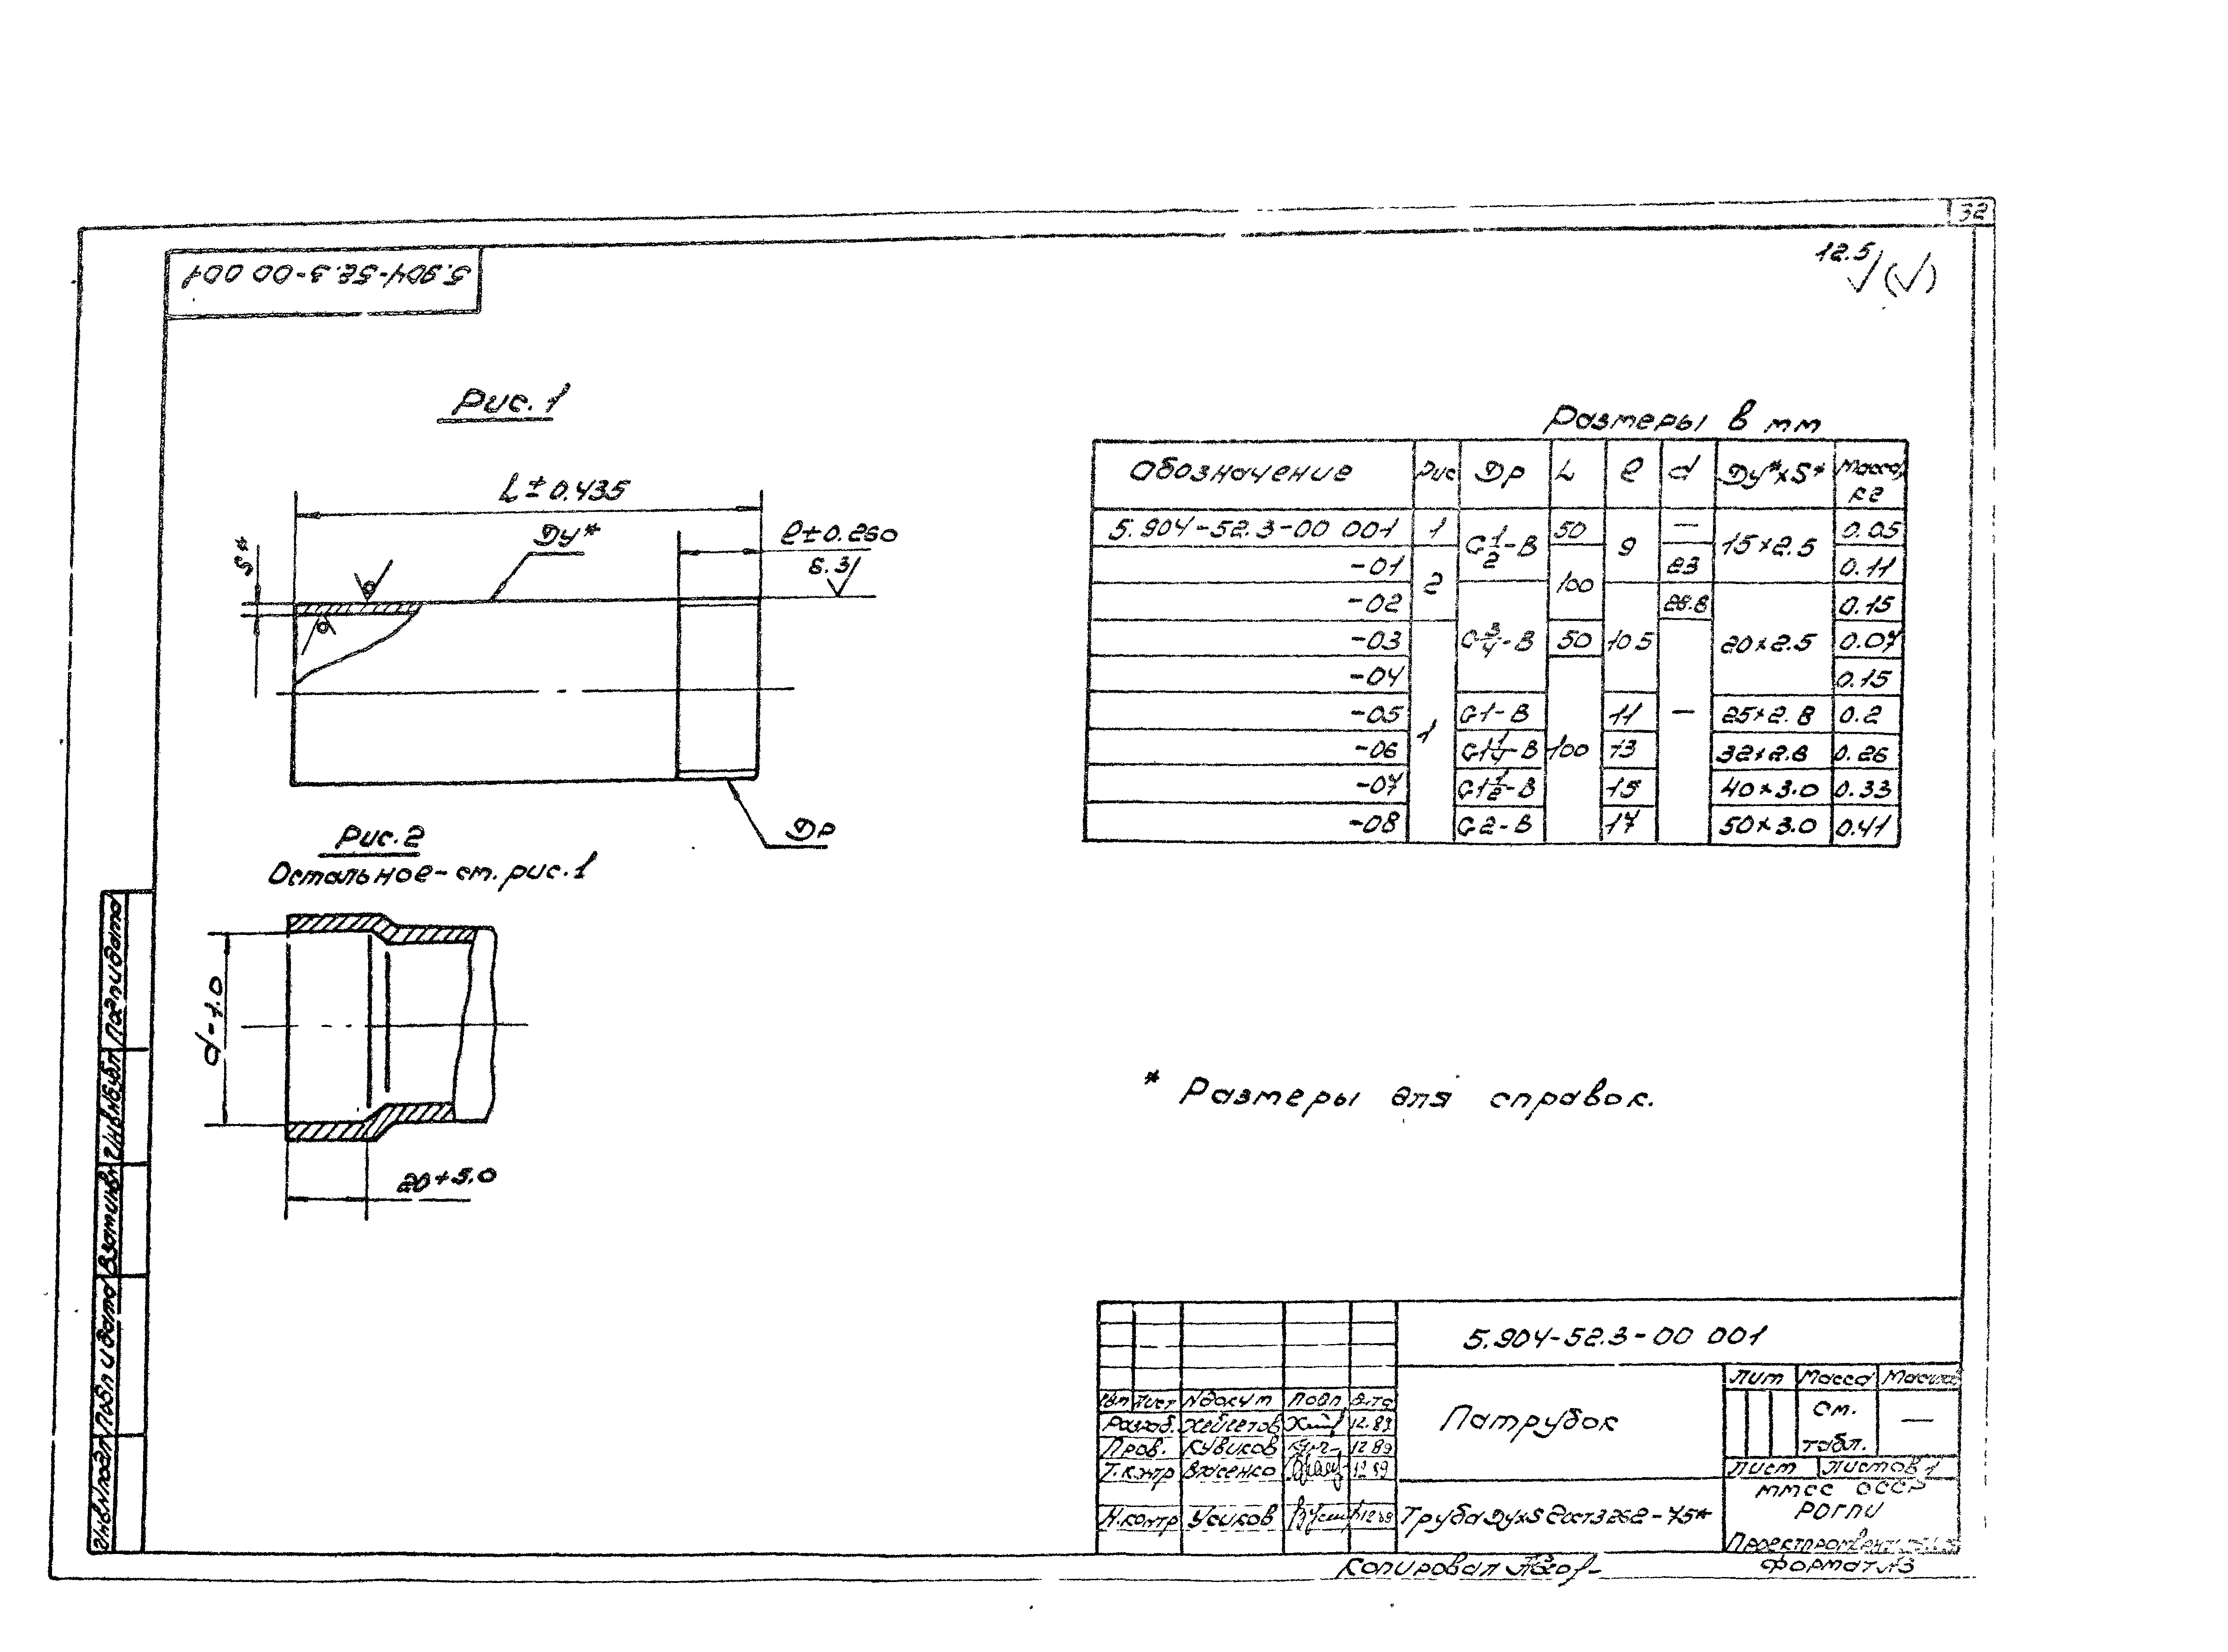 32
5.904-52.3-00 001
12.5
Рис. 1
L±0.435
Ду*
ℓ±0.260
6.3
S*
Др
Рис. 2
Остальное-см. рис. 1
d-1.0
20+5.0
Размеры в мм
Обозначение Рис Др L ℓ d Ду*×S* Масса, кг
5.904-52.3-00 001 1 G1/2-В 50 9 — 15×2.5 0.05
-01 2 100 23 0.11
-02 G3/4-В 10.5 28.8 20×2.5 0.15
-03 1 50 — 0.07
-04 100 0.15
-05 G1-В 11 25×2.8 0.2
-06 G1 1/4-В 13 32×2.8 0.26
-07 G1 1/2-В 15 40×3.0 0.33
-08 G2-В 17 50×3.0 0.41
* Размеры для справок.
Инв N подл
Подп и дата
Взам инв N
Инв N дубл
Подп и дата
5.904-52.3-00 001
Изм Лист N докум Подп Дата
Разраб. 12.89
Пров. Кувиков 12.89
Т.контр 12.89
Н.контр Усиков 12.89
Патрубок
Лит Масса Масштаб
см. табл. —
Лист Листов 1
Труба Ду×S ГОСТ 3262-75*
ММСС СССР
РОГПИ
Копировал
Формат А3